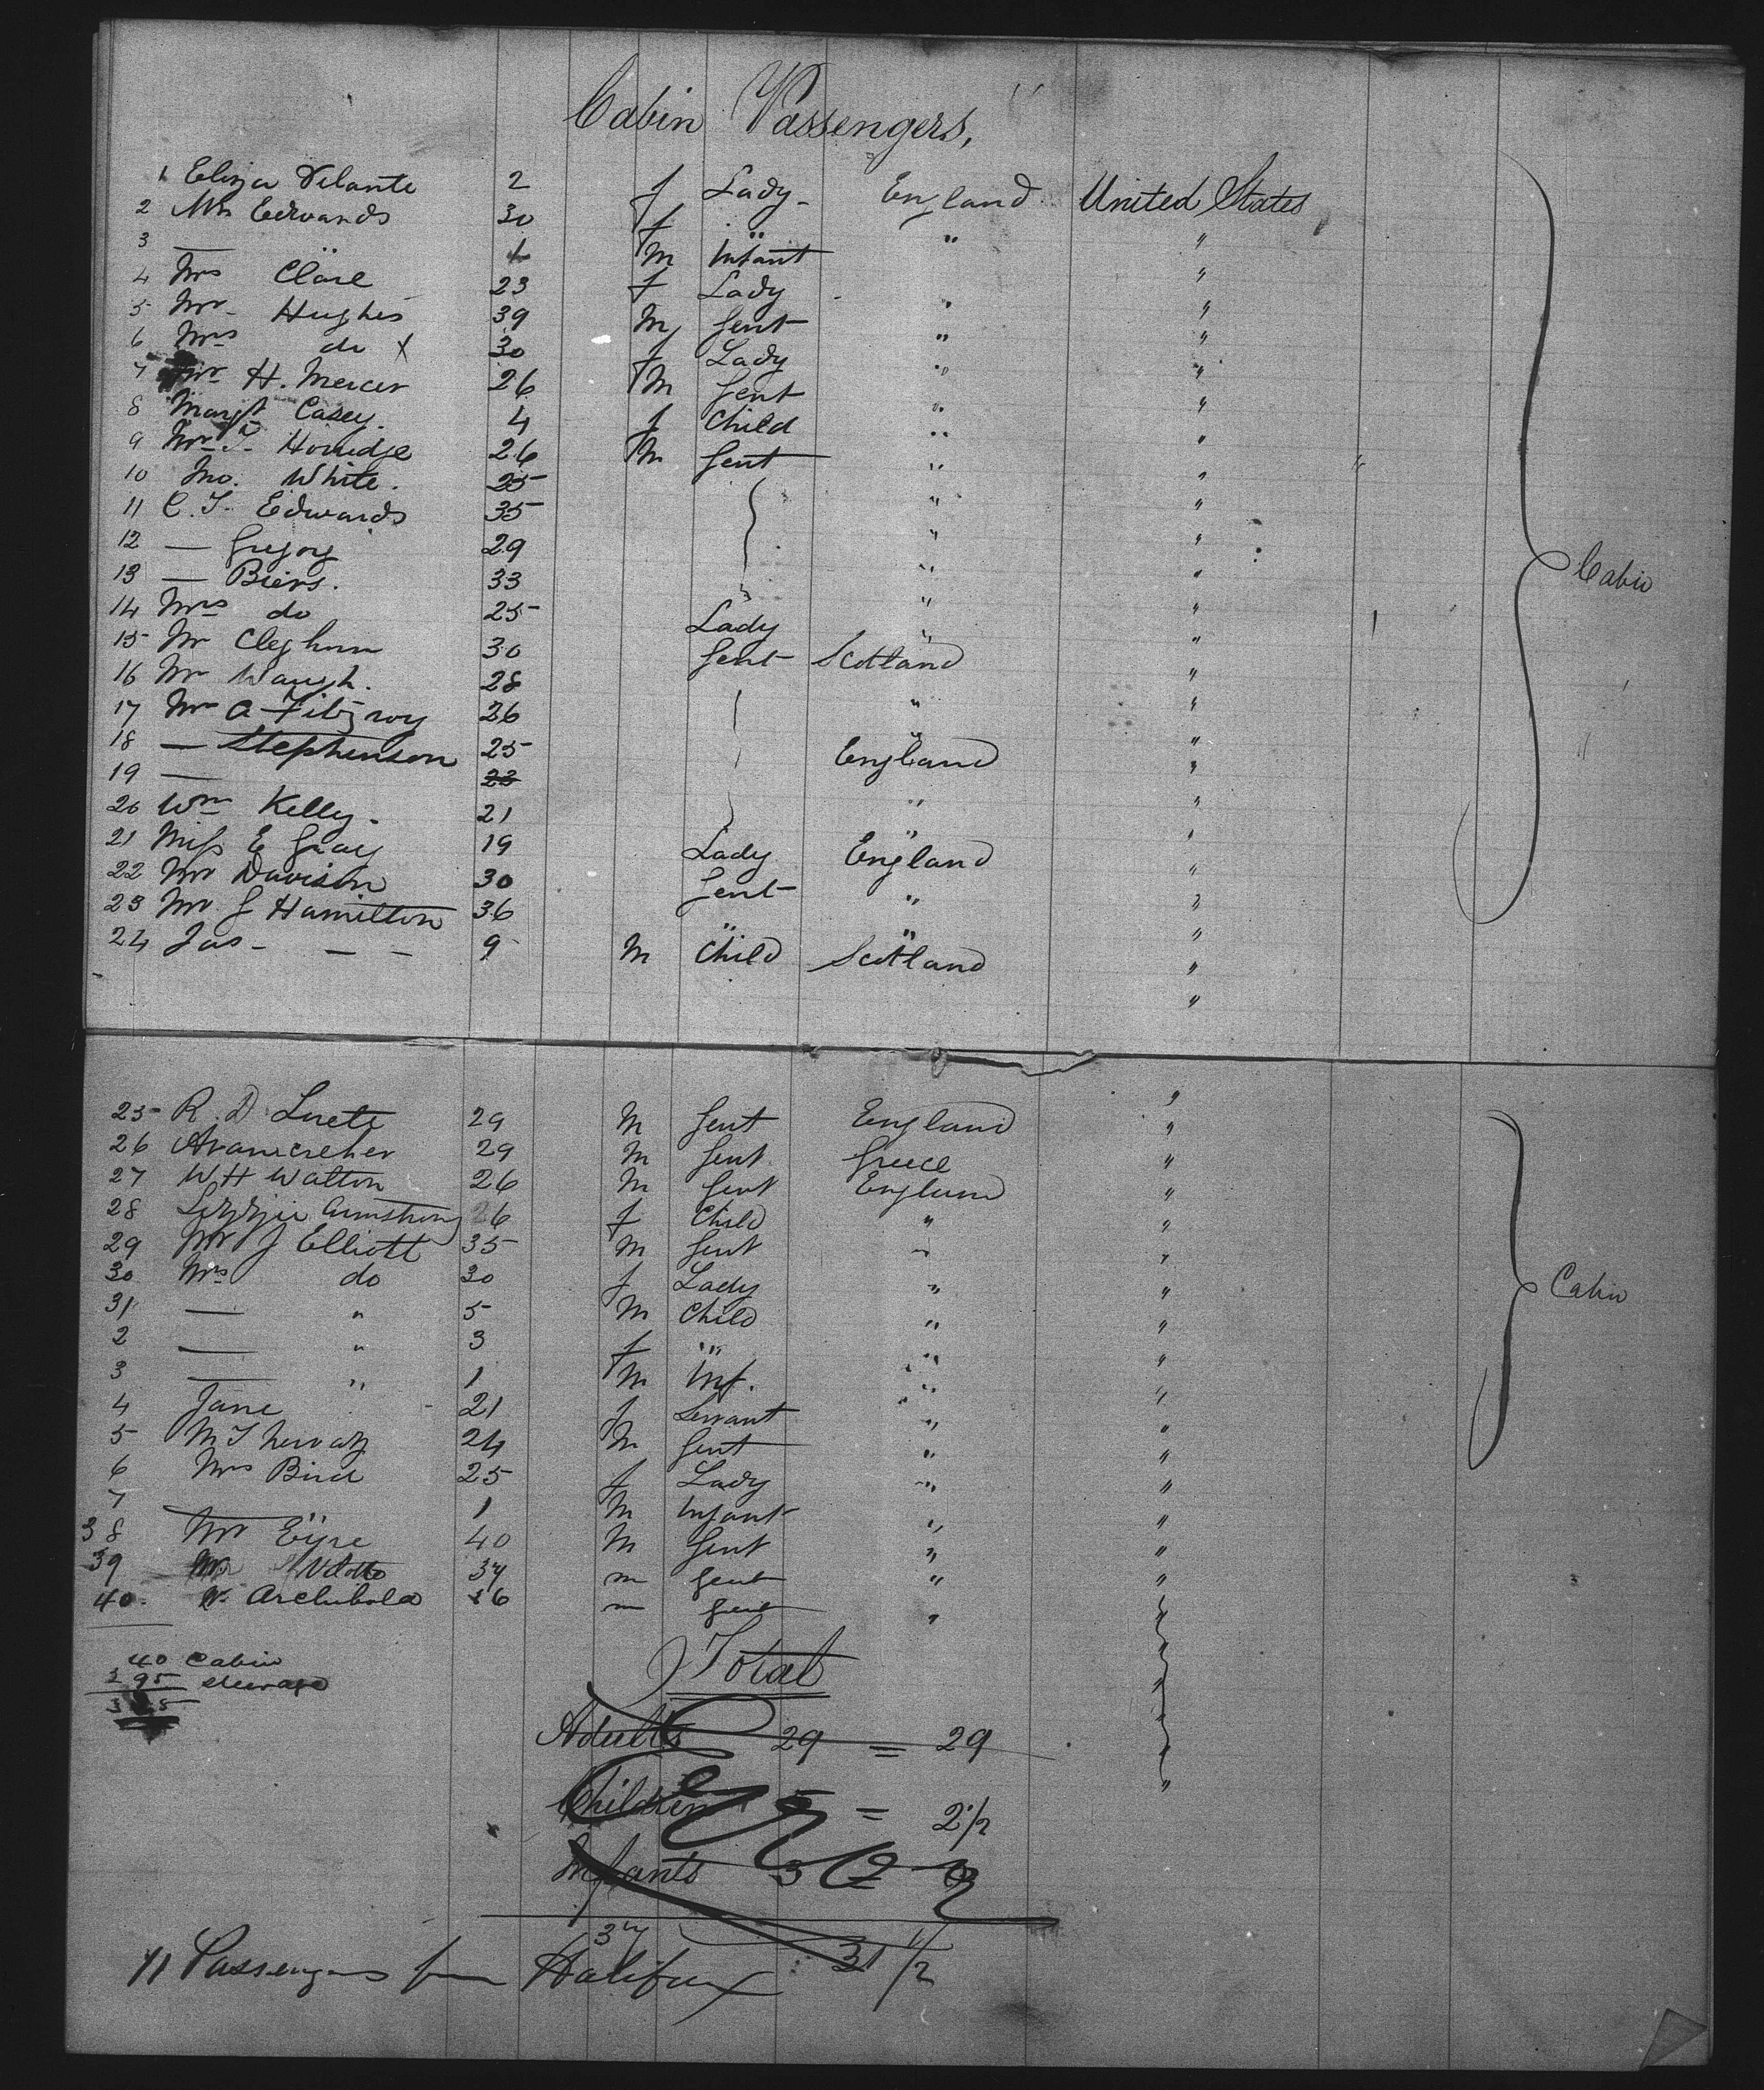 Cabin Passengers,
1 Eliza 2 f Lady England United States
2 Mrs Edwards 30 f " " "
3 — 1 M Infant "
4 Mrs Clare 23 f Lady " "
5 Mr Hughes 39 M Gent " "
6 Mrs do X 30 f Lady " "
7 Mr H. Mercer 26 M Gent " "
8 Margt Casey. 4 f Child " "
9 Mr T. 26 M Gent " "
10 Jno. White. 25 " "
11 C. T. Edwards 35 " "
12 — Gregory 29 " "
13 — Biers. 33 " "
14 Mrs do 25 Lady " "
15 Mr Cleghorn 30 Gent Scotland "
16 Mr Waugh. 28 "
17 Mr A Fitzroy 26 " "
18 — Stephenson 25 England "
19 — 23 "
20 Wm Kelly. 21 " "
21 Miss E Gray 19 Lady England "
22 Mr Davison 30 Gent " "
23 Mr J Hamilton 36 " " "
24 Jas - — — 9 M Child Scotland "
Cabin
25 R. D. 29 M Gent England "
26 29 M Gent Greece "
27 W H Walton 26 M Gent England "
28 Lizzie Armstrong 26 f Child " "
29 Mr J Elliott 35 M Gent " "
30 Mrs do 30 f Lady " "
31 — " 5 M Child " "
2 — " 3 f " " "
3 — " 1 M Inf. " "
4 Jane 21 f Servant " "
5 24 M Gent " "
6 Mrs Bird 25 f Lady " "
7 — 1 M Infant " "
38 Mr Eyre 40 M Gent " "
39 Mr 37 m Gent " "
40. Archibald 16 m Gent " "
Cabin
40 Cabin
295 steerage
Total
Adults 29 = 29
Children 5 = 2 1/2
Infants 3 = 0
37 31 1/2
Error
11 Passengers from Halifax